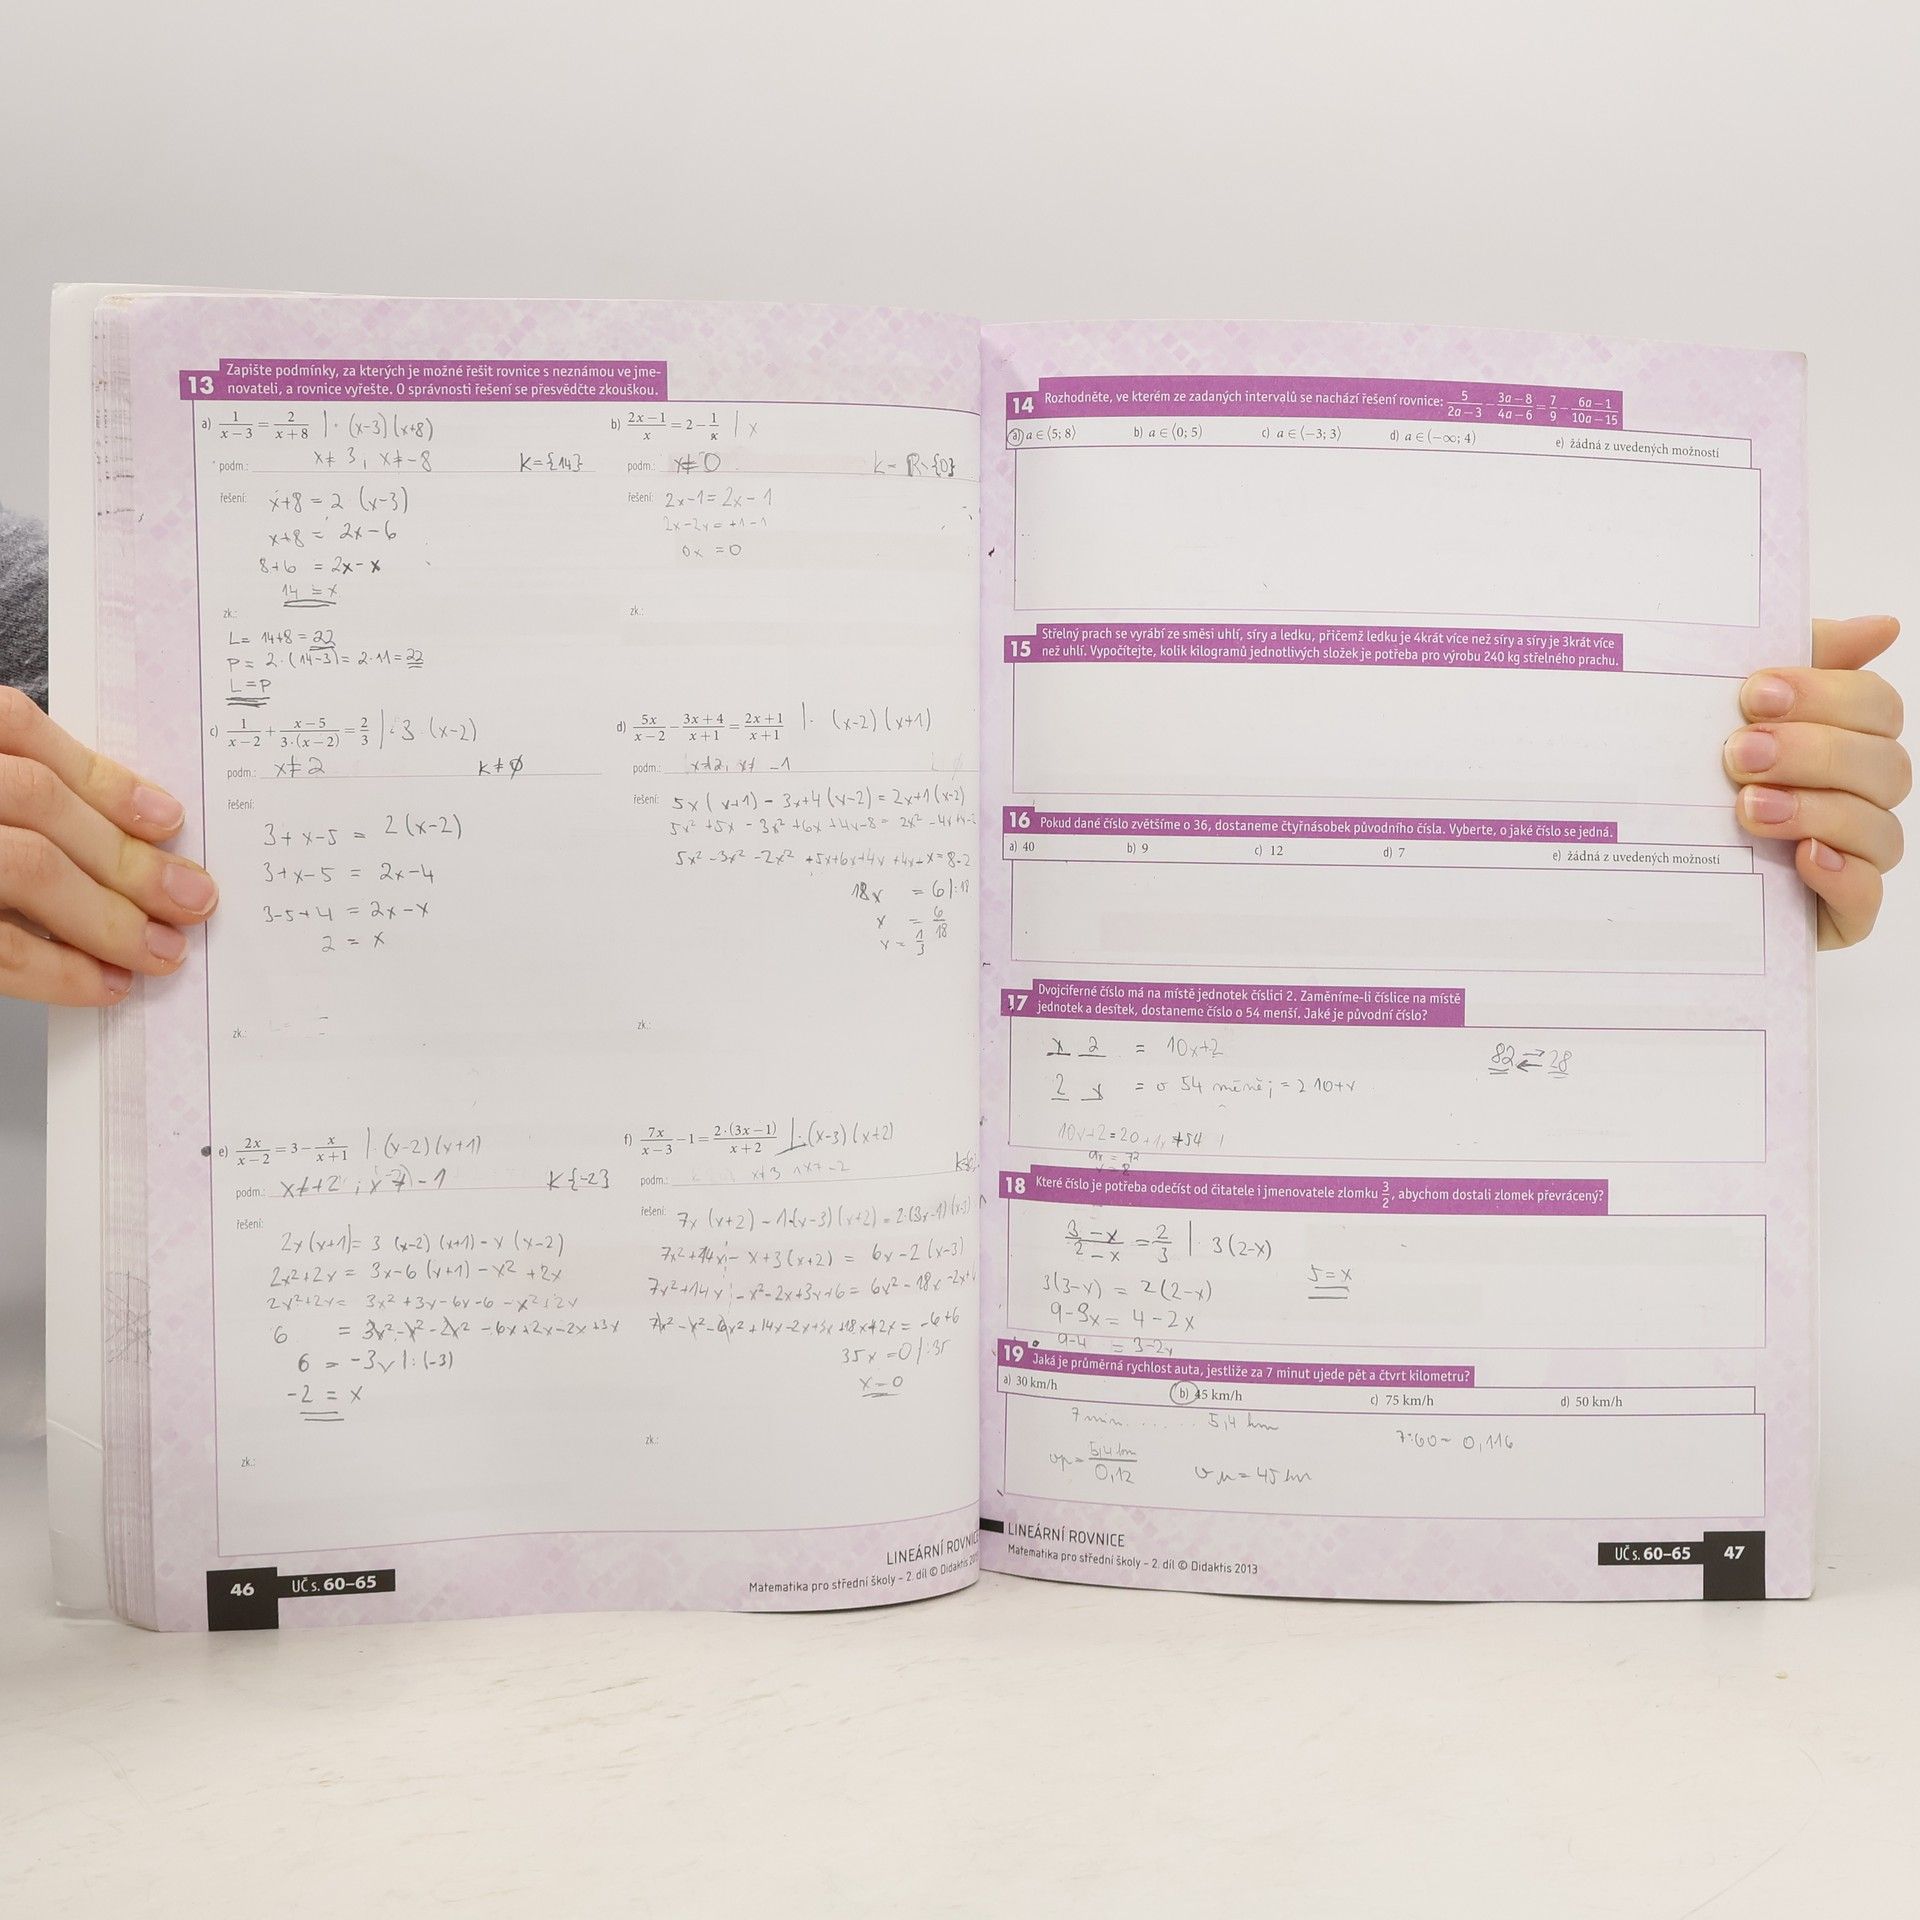 13 Zapište podmínky, za kterých je možné řešit rovnice s neznámou ve jme-
novateli, a rovnice vyřešte. O správnosti řešení se přesvědčte zkouškou.
a) 1/(x−3) = 2/(x+8) | · (x−3)(x+8)
podm.: x≠3, x≠−8 K={14}
řešení: x+8 = 2 · (x−3)
x+8 = 2x−6
8+6 = 2x−x
14 = x
zk.:
L= 14+8 = 22
P= 2·(14−3)= 2·11=22
L=P
b) (2x−1)/x = 2 − 1/x | x
podm.: x≠0 K= R∖{0}
řešení: 2x−1=2x−1
2x−2x=+1−1
0x =0
zk.:
c) 1/(x−2) + (x−5)/(3·(x−2)) = 2/3 | · 3 · (x−2)
podm.: x≠2 K≠∅
řešení:
3+x−5 = 2(x−2)
3+x−5 = 2x−4
3−5+4 = 2x−x
2 = x
zk.:
d) 5x/(x−2) − (3x+4)/(x+1) = (2x+1)/(x+1) | · (x−2)(x+1)
podm.: x≠2, x≠ −1
řešení: 5x(x+1) − 3x+4(x−2) = 2x+1(x−2)
5x²+5x − 3x²+6x+4x−8 = 2x²−4x+x−2
5x²−3x²−2x² +5x+6x+4x+4x+x=8−2
18x = 6 |:18
x = 6/18
x = 1/3
zk.:
e) 2x/(x−2) = 3 − x/(x+1) | · (x−2)(x+1)
podm.: x≠+2; x≠−1 K{−2}
řešení:
2x(x+1)= 3(x−2)(x+1)−x(x−2)
2x²+2x = 3x−6(x+1)−x²+2x
2x²+2x= 3x²+3x−6x−6−x²+2x
6 = 3x²−x²−2x²−6x+2x−2x+3x
6 = −3x |:(−3)
−2 = x
zk.:
f) 7x/(x−3) − 1 = 2·(3x−1)/(x+2) | · (x−3)(x+2)
podm.: x≠3 ∧ x≠−2
řešení: 7x(x+2)−1·(x−3)(x+2)=2·(3x−1)(x−3)
7x²+14x−x+3(x+2) = 6x−2(x−3)
7x²+14x−x²−2x+3x+6=6x²−18x−2x+6
7x²−x²−6x²+14x−2x+3x+18x+2x= −6+6
35x=0 |:35
x=0
zk.:
46 UČ s. 60–65
LINEÁRNÍ ROVNICE
Matematika pro střední školy – 2. díl © Didaktis
14 Rozhodněte, ve kterém ze zadaných intervalů se nachází řešení rovnice: 5/(2a−3) − (3a−8)/(4a−6) = 7/9 − (6a−1)/(10a−15)
a) a∈⟨5; 8⟩ b) a∈⟨0; 5) c) a∈(−3; 3⟩ d) a∈(−∞; 4) e) žádná z uvedených možností
15 Střelný prach se vyrábí ze směsi uhlí, síry a ledku, přičemž ledku je 4krát více než síry a síry je 3krát více
než uhlí. Vypočítejte, kolik kilogramů jednotlivých složek je potřeba pro výrobu 240 kg střelného prachu.
16 Pokud dané číslo zvětšíme o 36, dostaneme čtyřnásobek původního čísla. Vyberte, o jaké číslo se jedná.
a) 40 b) 9 c) 12 d) 7 e) žádná z uvedených možností
17 Dvojciferné číslo má na místě jednotek číslici 2. Zaměníme-li číslice na místě
jednotek a desítek, dostaneme číslo o 54 menší. Jaké je původní číslo?
x 2 = 10x+2 82 ⇄ 28
2 x = o 54 méně; = 2 10+x
10x+2=20+1x+54
9x = 72
x=8
18 Které číslo je potřeba odečíst od čitatele i jmenovatele zlomku 3/2, abychom dostali zlomek převrácený?
(3−x)/(2−x) = 2/3 | · 3(2−x)
3(3−x) = 2(2−x) 5=x
9−3x = 4−2x
9−4 = 3−2x
19 Jaká je průměrná rychlost auta, jestliže za 7 minut ujede pět a čtvrt kilometru?
a) 30 km/h b) 45 km/h c) 75 km/h d) 50 km/h
7 min....... 5,4 km 7:60= 0,116
vp= 5,4 km/0,12 = 45 km
LINEÁRNÍ ROVNICE
Matematika pro střední školy – 2. díl © Didaktis 2013
UČ s. 60–65 47